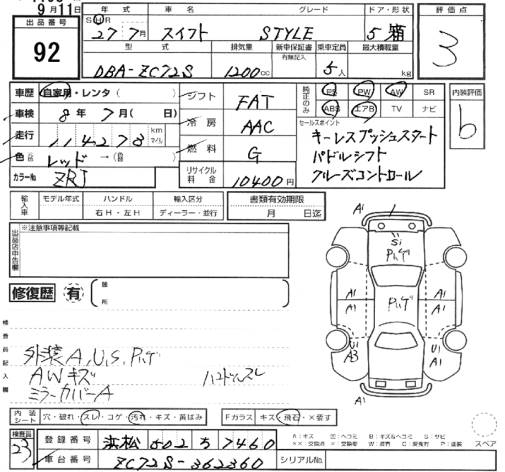 9月11
出品番号
92
年式 車名 グレード ドア・形状
27年7月 スイフト STYLE 5 箱
型式 排気量 新車保証書 乗車定員 最大積載量
有無記入
DBA-ZC72S 1200cc 5人 kg
評価点
3
車歴 自家用・レンタ( )
車検 8年7月( 日)
走行 114278 km マイル
色 レッド→
カラーNo ZRJ
シフト FAT
冷房 AAC
燃料 G
リサイクル料金 10400円
純正のみ PS PW AW SR
ABS エアB TV ナビ
セールスポイント
キーレスプッシュスタート
パドルシフト
クルーズコントロール
内装評価
b
輸入車 モデル年式 ハンドル 輸入区分
右H・左H ディーラー・並行
書類有効期限
月 日迄
出品店申告欄
※注意事項等記載
修復歴 有 箇所
検査員記入欄
外装A,U,S,Pﾊｹﾞ
AWキズ ハンドルスレ
ミラーカバーA
A1 1 A1
S1
Pﾊｹﾞ
A1 A1 A1 A1
Pﾊｹﾞ
A1 A1
A3 U1 A1
A1
内装シート 穴・破れ・スレ・コゲ・汚れ・キズ・黄ばみ
Fガラス キズ・飛石・×要す
検査員
23
登録番号 浜松 502 ち 7460
車台番号 ZC72S-362360
シリアルNo.
A:キズ U:ヘコミ B:キズ&ヘコミ S:サビ
スペア